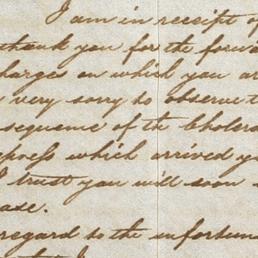 I am in receipt of
thank you for the forw
charges on which you ar
very sorry to observe t
sequence of the Cholera
which arrived y
I trust you will soon
ease.
regard to the unfortun